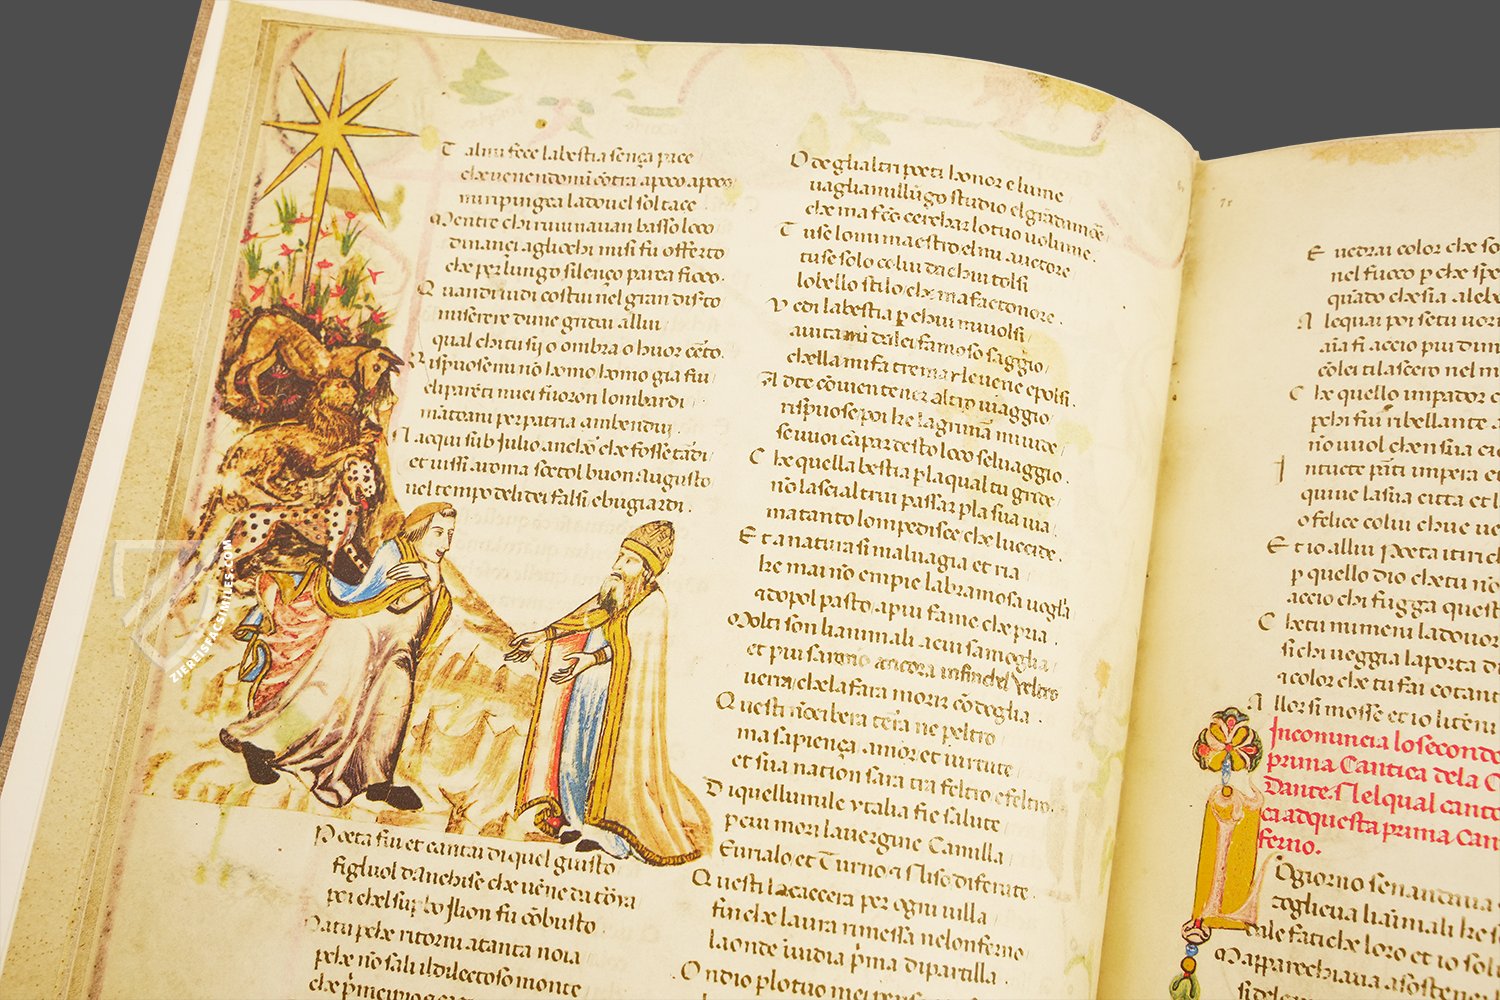 Tal mi fece la bestia sença pace
che venendomi cōtra apoco apoco
mi ripingea la dovel sol tace
Mentre chi ruvinavan basso loco
dinançi agliochi misi fu offerto
che per lungo silenço parea fioco.
Quandi vidi costui nel gran disto
miserere dime gridai allui
qual chi tu sij o ombra o huor cēto.
Rispuosemi nō homo homo gia fui
eli parēti miei fuoron lombardi
mātoani per patria ambendui.
Nacqui sub Julio anchor che fosse tardi
et vissi aroma socto'l buon augusto
nel tempo deli dei falsi e bugiardi.
Poeta fui et cantai di quel giusto
figliuol danchise che vēne da troya
poi chel supbo Ilion fu cōbusto
Matu pche ritorni atanta noia
pche nō sali il dilectoso monte
che prncipio
O deglialtri poeti honor e lume
vagliamillūgo studio el grādamore
che ma fece cerchar lo tuo volume.
Tuse lo mi maestro el mi auctore
tuse solo colui da chui tolsi
lo bello stilo che ma fac to honore.
Vedi la bestia p chui mi volsi
aiutami da lei famoso saggio
chella mi fa tremar le vene e polsi.
Ad te cōvien tener altro viaggio
rispuose poi he lagrimar mi vide
se vuoi cāpar desto loco selvaggio.
Che quella bestia p la qual tu gride
nō lascia altrui passar p la sua via
ma tanto lompedisce che luccide.
Et a natura si malvagia et ria
he mai nō empie la bramosa voglia
et dopol pasto a piu fame che pria.
Molti son lianimali acui samoglia
et piu saranno ancora infin chel veltro
verra che la fara morir cō doglia.
Questi nō cibera terra ne peltro
ma sapiença amor et virtute
et sua nation sara tra feltro e feltro.
Di quellumile ytalia fie salute
p cui mori la vergine Camilla
Eurialo et Turno et Niso di ferute.
Questi la caccera per ogni villa
fin che laura rimessa nelonferno
la onde īvidia prima dipartilla.
Ondio p lo tuo me
71
E vedrai color che so
nel fuoco p che spe
quādo che sia ale be
A lequai poi se tu vorr
aīa fi a ccio piu di m
con lei ti lascero nel m
Che quello impador c
pchi fui ribellante a
nō vuol che n sua ci
Intucte pti impera et
quivi la sua citta et l
o felice colui chui ve
Et io allui Poeta i ti rich
p quello dio che tu nō
accio chi fugga quest
Che tu mi meni la dov or
si chi veggia la porta di
a color che tu fai cotant
Allor si mosse et io li tēni
Incomincia lo secondo
prima Cantica dela C
Dante. Nel qual canto
ad questa prima Can
ferno.
Lo giorno sen andava
toglieva lianimali he so
dale fatiche loro et io sol
Mapparechiava a sostene
si del
ZIEREISFACSIMILES.COM